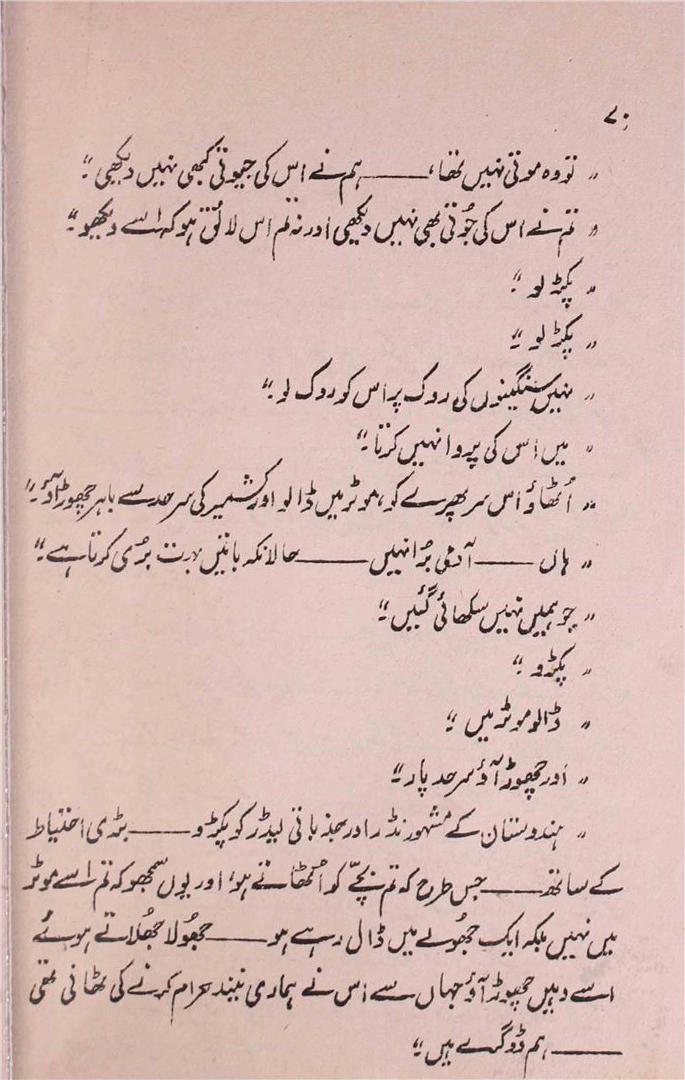 ۷۰
” تو وہ موتی نہیں تھا، ــــــ ہم نے اس کی جیوتی کبھی نہیں دیکھی “
” تم نے اس کی جُوتی بھی نہیں دیکھی اور نہ تم اس لائق ہو کہ اسے دیکھو “
” پکڑ لو “
” پکڑ لو “
” نہیں سنگینوں کی روک پر اس کو روک لو “
” میں اس کی پروا نہیں کرتا “
” اُٹھاؤ اس سر پھرے کو، موٹر میں ڈالو اور کشمیر کی سرحد سے باہر چھوڑ آؤ “
” ہاں ــــــ آدمی بُرا نہیں ــــــ حالانکہ باتیں بہت بُری کرتا ہے “
” جو ہمیں نہیں سکھائی گئیں “
” پکڑو “
” ڈالو موٹر میں “
” اور چھوڑ آؤ سرحد پار “
” ہندوستان کے مشہور نڈر اور جذباتی لیڈر کو پکڑو ــــــ بڑی احتیاط
کے ساتھ ــــــ جس طرح کہ تم بچّے کو اُٹھاتے ہو، اور یوں سمجھو کہ تم اسے موٹر
میں نہیں بلکہ ایک جھولے میں ڈال رہے ہو ــــــ جھُولا جھُلاتے ہوئے
اسے وہیں چھوڑ آؤ جہاں سے اس نے ہماری نیند حرام کرنے کی ٹھانی تھی
ــــــ ہم ڈوگرے ہیں “